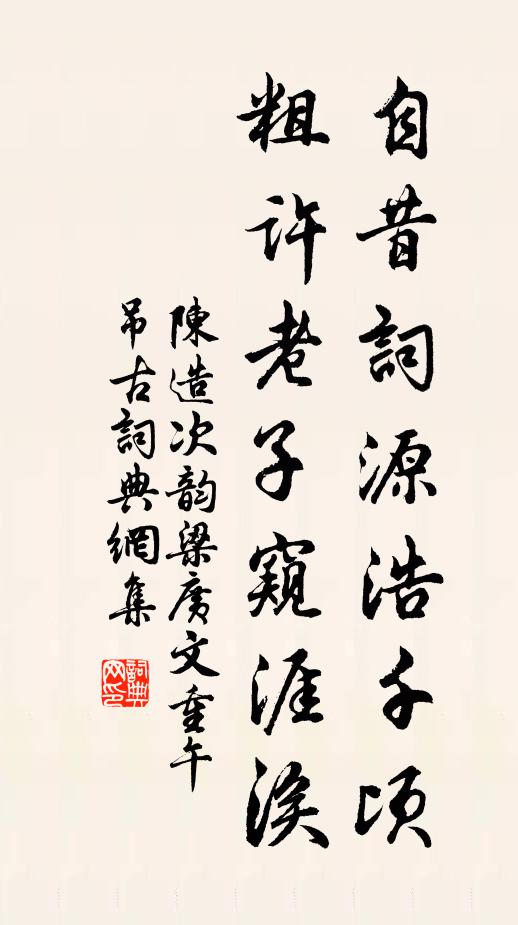 自昔詞源浩千頃
粗許老子窺涯涘
陳造次韵梁廣文重午
吊古詞典網集
詞典網印